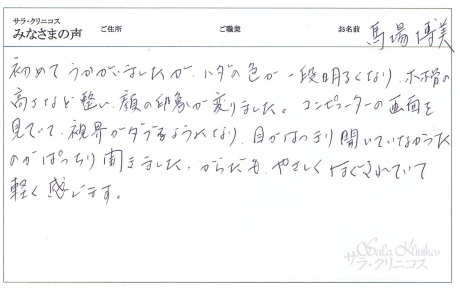 サラ・クリニコス
みなさまの声 ご住所 ご職業 お名前 馬場 博美
初めてうかがいましたが、ハダの色が一段明るくなり、ホホ骨の
高さなど整い、顔の印象が変りました。コンピューターの画面を
見ていて、視界がダブるようになり、目がはっきり開いていなかった
のがぱっちり開きました。からだも、やさしくほぐされていて
軽く感じます。
Sala Klinikos
サラ・クリニコス